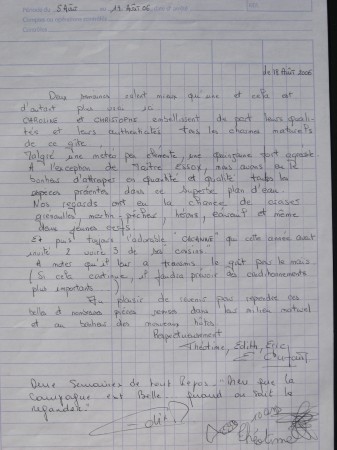 5 Août au 19 Août 06
le 18 Août 2006
Deux semaines valent mieux qu'une et cela est
d'autant plus vrai ici
CAROLINE et CHRISTOPHE embellissent de part leurs quali-
tés et leurs authenticités tous les charmes naturels
de ce gîte.
Malgré une météo pas clémente, une quinzaine fort agréable
A l'exception de Maître Essox, nous avons eu le
bonheur d'attraper en quantité et qualité toutes les
espèces présentes dans ce superbe plan d'eau.
Nos regards ont eu la chance de croiser
grenouilles, martin-pêcheur, hérons, et même
deux jeunes
Et puis toujours l'adorable qui cette année avait
invité 2 voire 3 de ses
A noter qu'il leur a transmis le goût pour le maïs
(Si cela continue, il faudra prévoir des conditionnements
plus importants)
plaisir de revenir pour reprendre ces
belles et nombreuses prises remises dans leur milieu naturel
et au bonheur des nouveaux hôtes.
Respectueusement
Edith, Eric
Deux Semaines de tout Repos. "Dieu que la
Campagne est Belle quand on sait la
regarder."
Edith